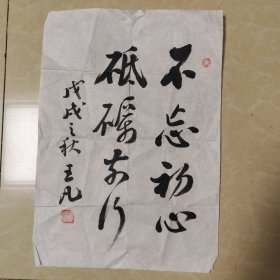 不忘初心
砥砺前行
戊戌之秋王凡